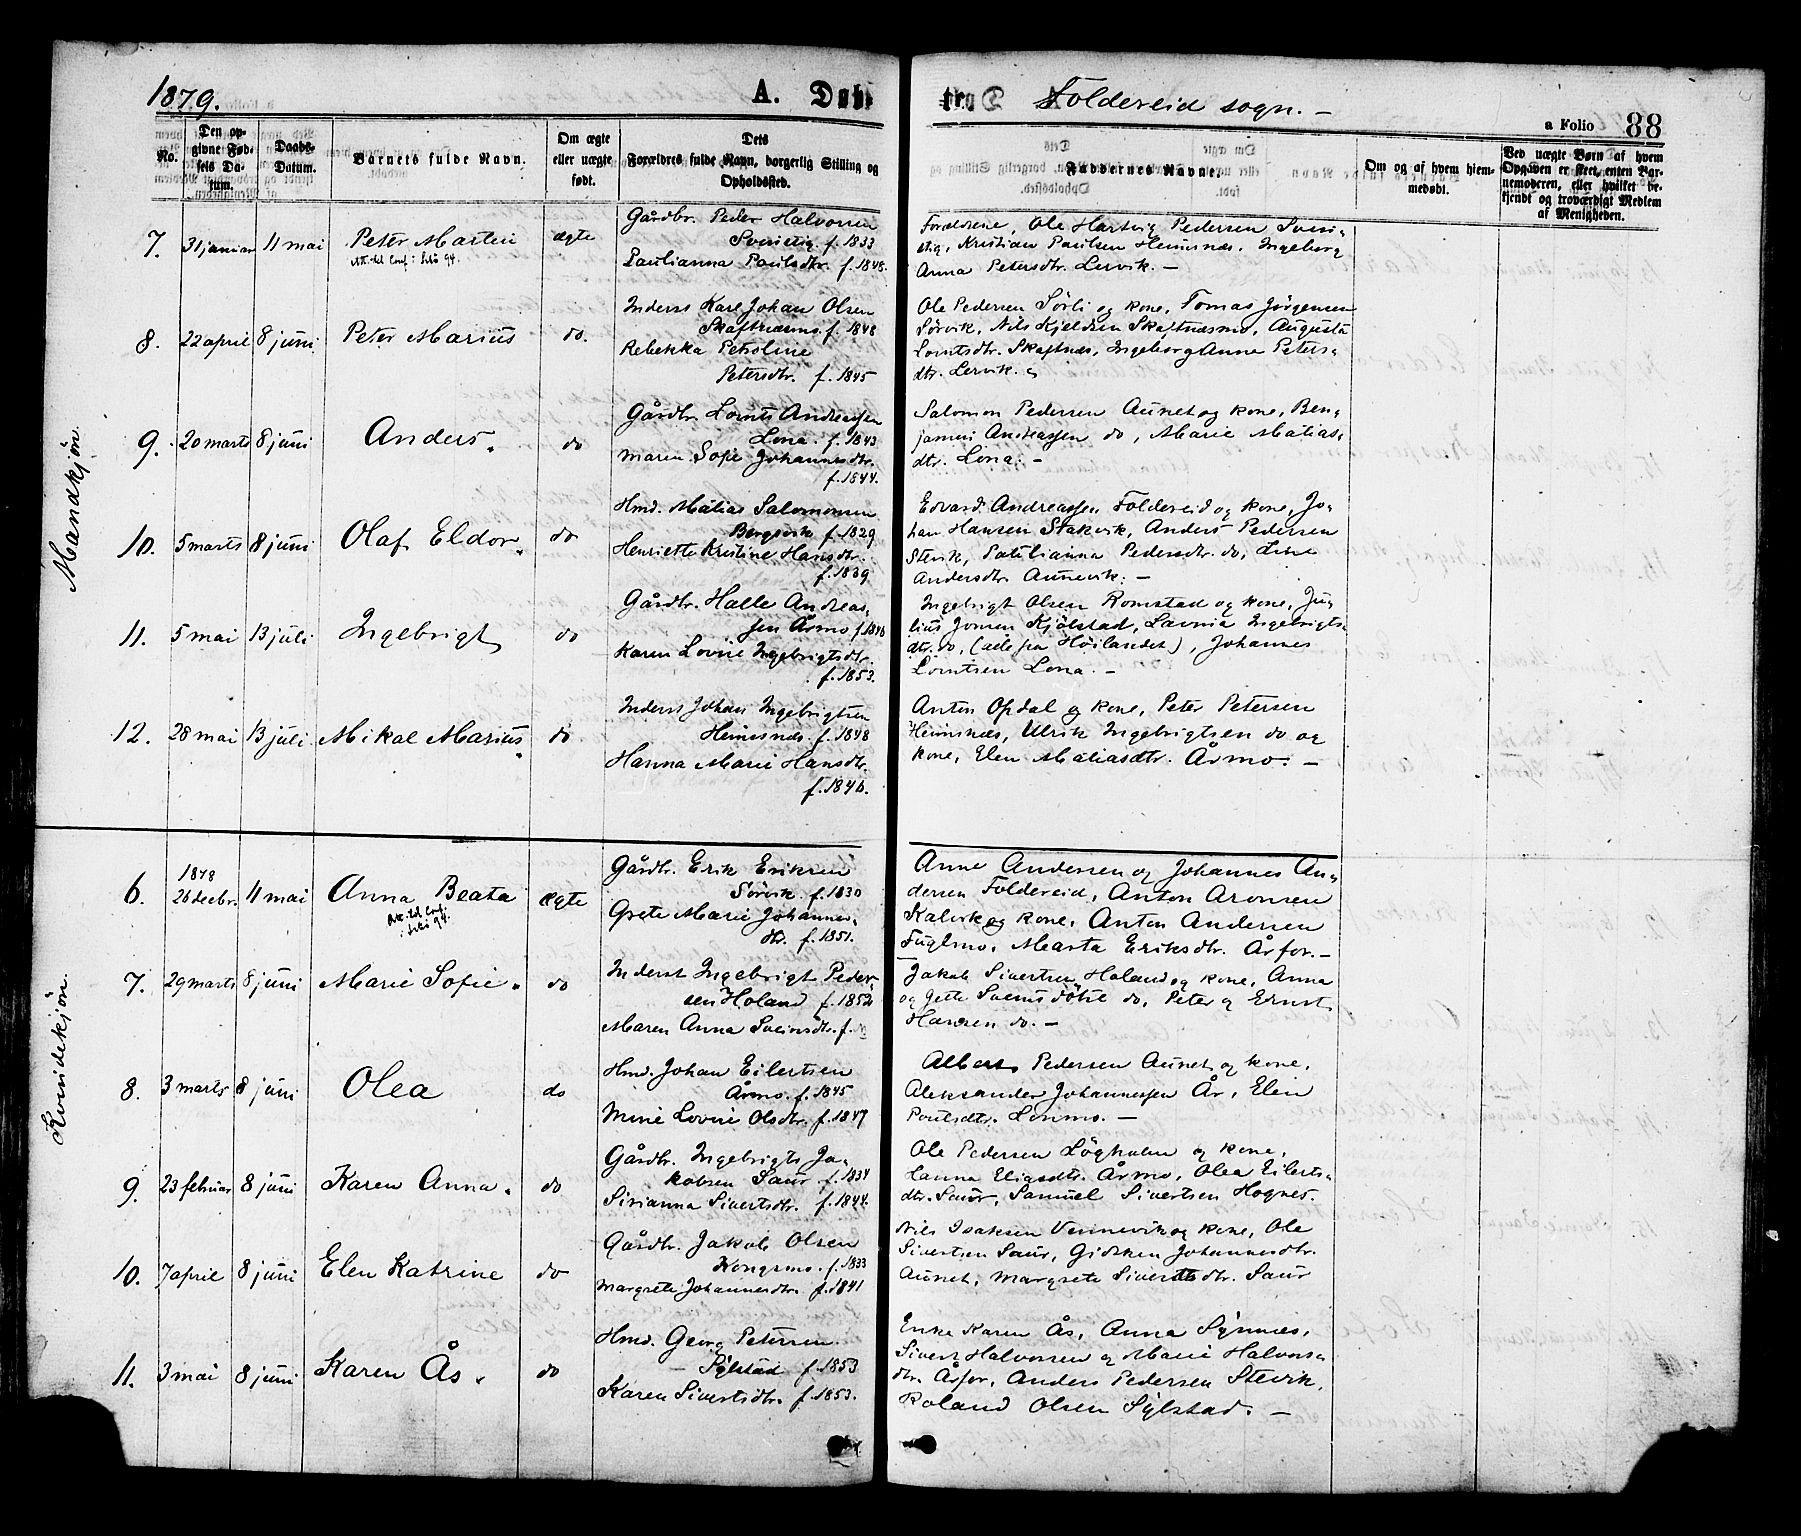 1879.
A. Døb
Foldereid sogn. —
a Folio 88
No.
Den opgivne Fødsels Datum.
Daabs-Datum.
Barnets fulde Navn.
Om ægte eller uægte født.
Dets Forældres fulde Navn, borgerlig Stilling og Opholdssted.
Faddernes Navne.
Om og af hvem hjemmedøbt.
Ved uægte Børn af hvem Opgaven er skeet, enten Barnemoderen, eller hvilket bekjendt og troværdigt Medlem af Menigheden.
Mandkjøn.
7. 31 januar 11 mai Peter Martin ægte
Att. til Conf. i 94.
Gårdbr. Peder Halvorsen
f. 1833
Paulianna Paulsdtr. f. 1848.
Forældrene, Ole Hartvig Pedersen
Kristian Paulsen Heimsnæs, Ingeborg
Anna Petersdtr. Lervik. —
8. 22 april 8 juni Peter Marius do.
Inderst Karl Johan Olsen
Skaftnæsmo. f. 1848
Rebekka Petroline
Petersdtr. f. 1845
Ole Pedersen Sørli og kone, Tomas Jørgensen
Sørvik, Nils Kjeldsen Skaftnæsmo, Augusta
Lorntsdtr. Skaftnæs, Ingeborg Anne Peters-
dtr. Lervik.
9. 20 marts 8 juni Anders do
Gårdbr. Lornts Andreassen
Lona. f. 1843
Maren Sofie Johannesdtr.
f. 1844.
Salomon Pedersen Aunet og kone, Ben-
jamin Andreassen do, Marie Matias-
dtr. Lona. —
10. 5 marts 8 juni Olaf Eldor do
Hmd. Matias Salomonsen
Bergsvik f. 1829
Henriette Kristine Hansdtr.
f. 1839
Edvard Andreassen Foldereid og kone, Jo-
han Hansen Stakvik, Anders Pedersen
Stevik, Paulianna Pedersdtr. do, Line
Andersdtr. Aunevik. —
11. 5 mai 13 juli Ingebrigt do
Gårdbr. Halle Andreas-
sen Årmo f. 1846
Karen Lovise Ingebrigtsdtr.
f. 1853.
Ingebrigt Olsen Romstad og kone, Ju-
lius Jonsen Kjølstad, Lavina Ingebrigts-
dtr. do, (alle fra Høilandet), Johannes
Lorntsen Lona. —
12. 28 mai 13 juli Mikal Marius do
Inderst Johan Ingebrigtsen
Heimsnæs. f. 1848
Hanna Marie Hansdtr.
f. 1846.
Anton Opdal og kone, Peter Petersen
Heimsnæs, Ulrik Ingebrigtsen do og
kone, Elen Matiasdtr. Årmo. —
Kvindekjøn.
1878
6. 26 decbr. 11 mai Anna Beata ægte
Att. til Conf. i 94.
Gårdbr. Erik Eriksen
Sørvik. f. 1830
Grete Marie Johannes-
dtr. f. 1851.
Anne Andersen og Johannes An-
dersen Foldereid, Anton Aronsen
Kalvik og kone, Anton Andersen
Fuglmo, Marta Eriksdtr. Årfor. —
7. 29 marts 8 juni Marie Sofie do
Inderst Ingebrigt Peder-
sen Holand f. 1852
Maren Anna Sveinsdtr. f. do
Jakob Sivertsen Holand og kone, Anna
og Jette Sveinsdøtre do, Peter og Ernst
Hansen do. —
8. 3 marts 8 juni Olea do
Hmd. Johan Eilertsen
Årmo. f. 1845
Mine Lovise Olsdtr. f. 1847
Albert Pedersen Aunet og kone,
Aleksander Johannessen År, Elen
Paulsdtr. Lonmo. —
9. 23 februar 8 juni Karen Anna. do
Gårdbr. Ingebrigt Ja-
kobsen Saur f. 1834
Sirianna Sivertsdtr. f. 1844.
Ole Pedersen Løgholm og kone,
Hanna Eliasdtr. Årmo, Olea Eilerts-
dtr. Saur, Samuel Sivertsen Hognes.
10. 7 april 8 juni Elen Katrine do
Gårdbr. Jakob Olsen
Kongsmo. f. 1833
Margrete Johannesdtr. f. 1841
Nils Isaksen Vennevik og kone, Ole
Sivertsen Saur, Gidsken Johannesdtr.
Aunet, Margrete Sivertsdtr. Saur
11. 3 mai 8 juni Karen Ås. do
Hmd. Georg Petersen
— Sylstad f. 1853
Karen Sivertsdtr. f. 1853.
Enke Karen Ås, Anna Synnæs,
Sivert Halvorsen og Marie Halvors-
dtr. Årfor, Anders Pedersen Stevik,
Roland Olsen Sylstad. —